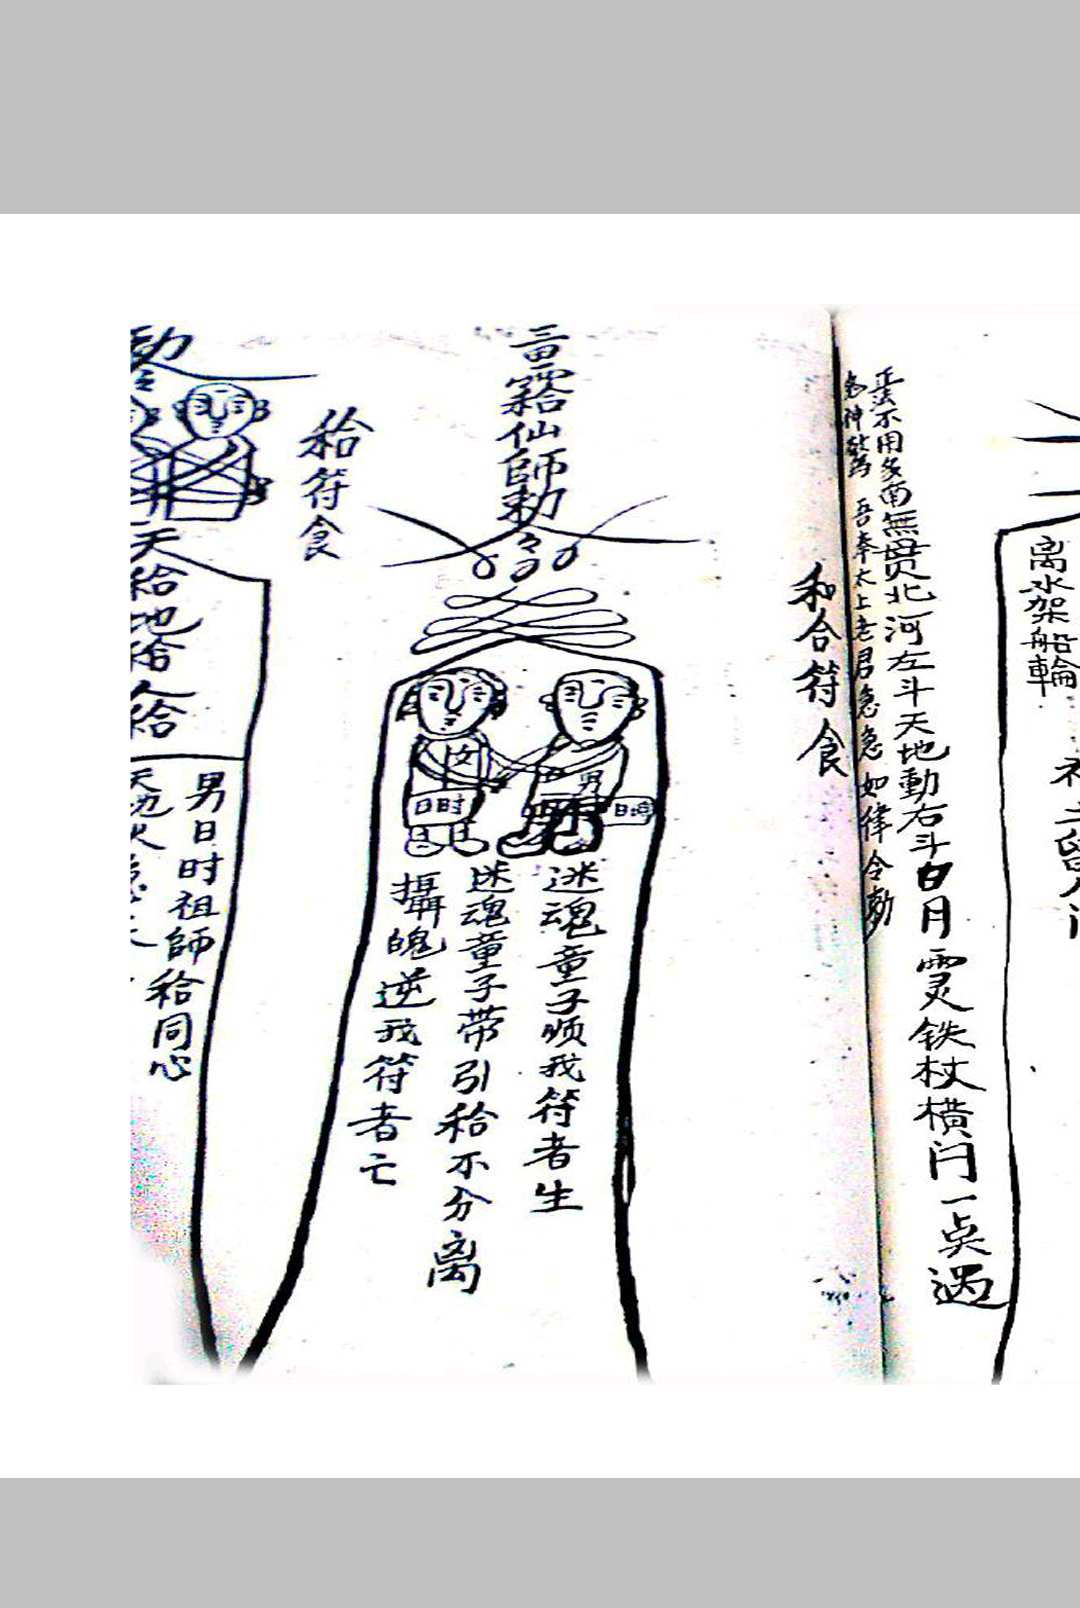 离水架船輪
正法不用多南無貫北河左斗天地動右斗日月霊铁杖横门一点遇
吾奉太上老君急急如律令勅
和合符食
仙師勅令
女 男
日时 日时
迷魂童子顺我符者生
迷魂童子带引秴不分离
攝魄逆我符者亡
秴符食
勅令
天秴地秴人秴
男日时祖師秴同心